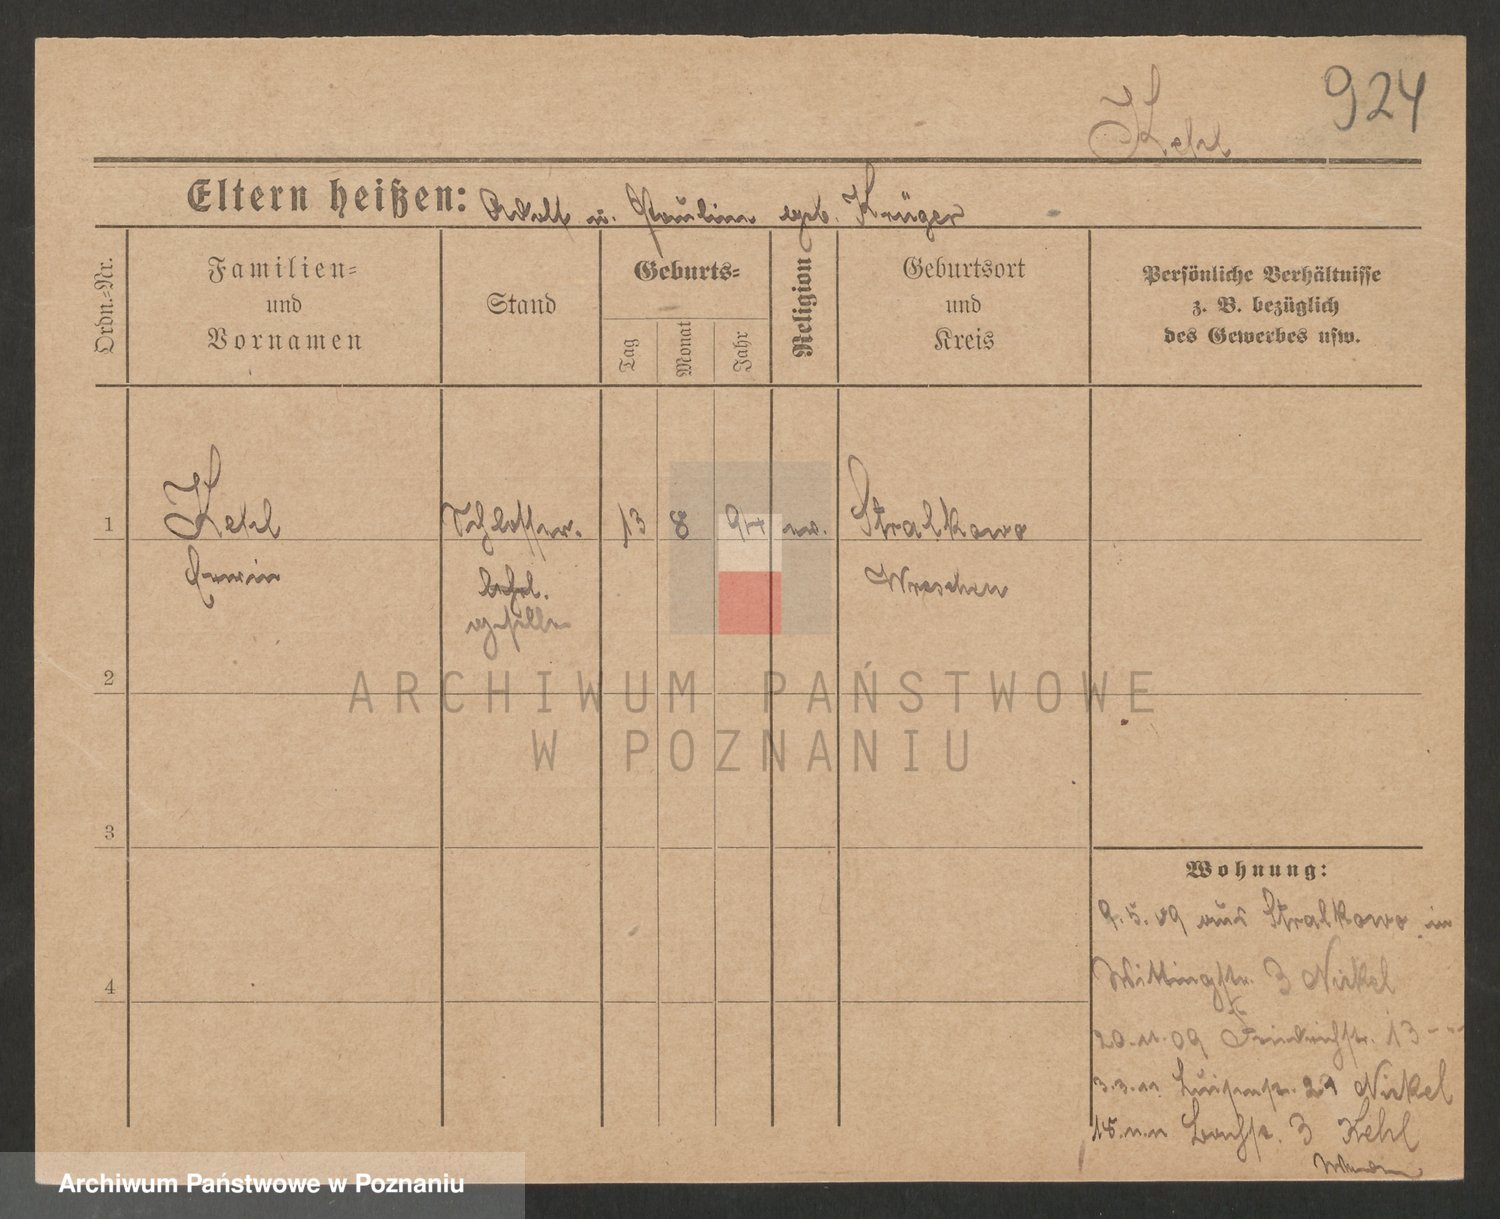 924
Kehl
Eltern heißen: Adolf u. Pauline geb. Krüger
Ordn.=Nr.
Familien=
und
Vornamen
Stand
Geburts=
Tag
Monat
Jahr
Religion
Geburtsort
und
Kreis
Persönliche Verhältnisse
z. B. bezüglich
des Gewerbes usw.
1
Kehl
Erwin
Schlosser.
lehrl.
geselle
13
8
94
ev.
Stralkowo
Wreschen
2
3
4
Wohnung:
9.5.09 aus Stralkowo in
Wittingstr. 3 Nickel
20.11.09 Friedrichstr. 13
3.3.11 Luisenstr. 21 Nickel
15.11.11 Bachstr. 3 Kehl
ARCHIWUM PAŃSTWOWE
W POZNANIU
Archiwum Państwowe w Poznaniu